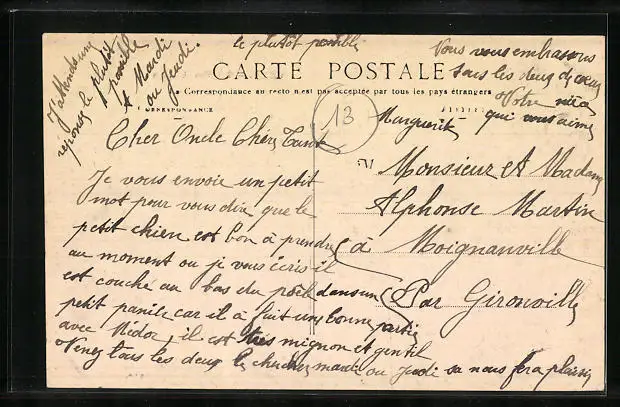 J'attendsum
reponse le plutôt
possible
Mardi
ou Jeudi.
le plutôt possible
Vous vous embrassons
tous les deux de coeur
Votre nièce
qui vous aime
Marguerit
CARTE POSTALE
La Correspondance au recto n'est pas acceptée par tous les pays étrangers
CORRESPONDANCE
13
Cher Oncle Chère Tante
Je vous envoie un petit
mot pour vous dire que le
petit chien est bon à prendre
au moment ou je vous écris il
est couché au bas du poêl dansun
petit panile car il à fait une bonne partie
avec Médor, il est très mignon et gentil
Venez tous les deux le cherchez mardi ou Jeudi sa nous fera plaisir
M
Monsieur et Madame
Alphonse Martin
à Moignanville
Par Gironville